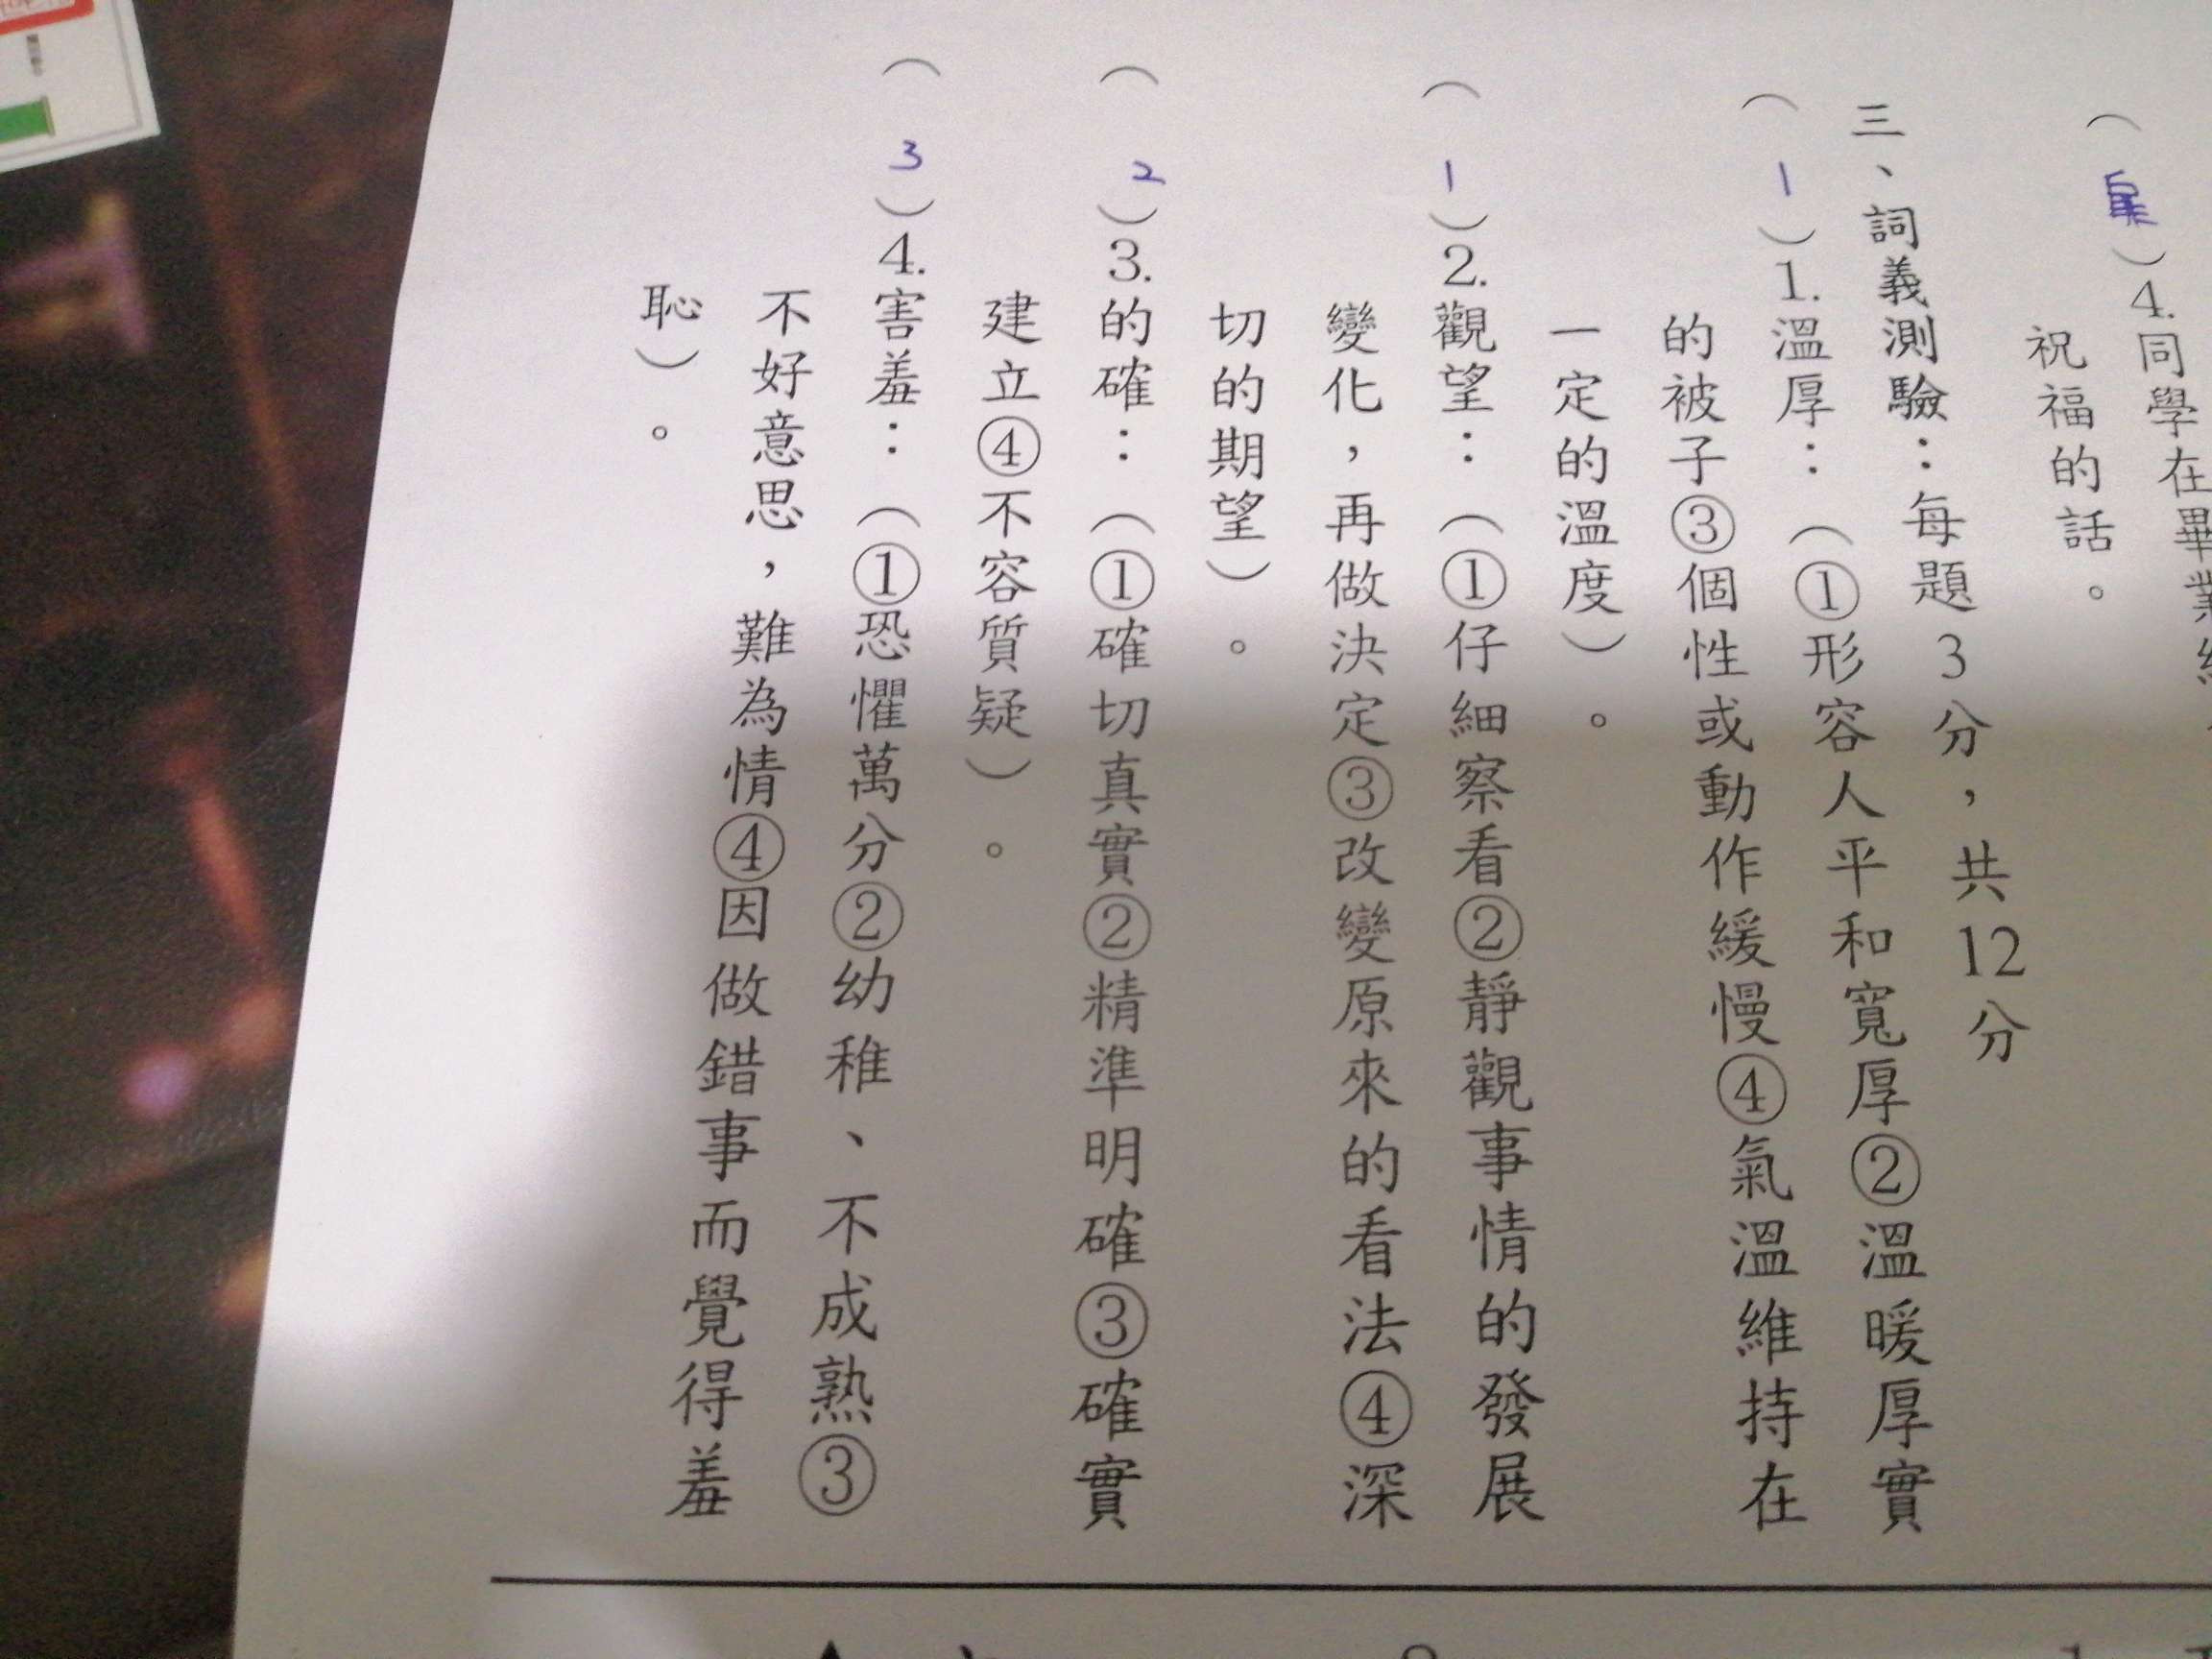 同學在畢業紀
4.
祝福的話。
三、詞義測驗：每題3分，共12分
（1）1.溫厚：（①形容人平和寬厚②溫暖厚實
的被子③個性或動作緩慢④氣溫維持在
一定的溫度）。
（1）2.觀望：（①仔細察看②靜觀事情的發展
變化，再做決定③改變原來的看法④深
切的期望）。
（2）3.的確：（①確切真實②精準明確③確實
建立④不容質疑）。
（3）4.害羞：（①恐懼萬分②幼稚、不成熟③
不好意思，難為情④因做錯事而覺得羞
恥）。